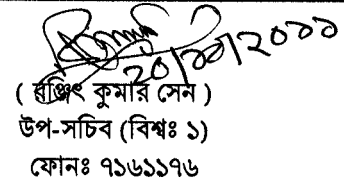 ২০/১১/২০১১
( রঞ্জিৎ কুমার সেন )
উপ-সচিব (বিশ্বঃ ১)
ফোনঃ ৭১৬১১৭৬